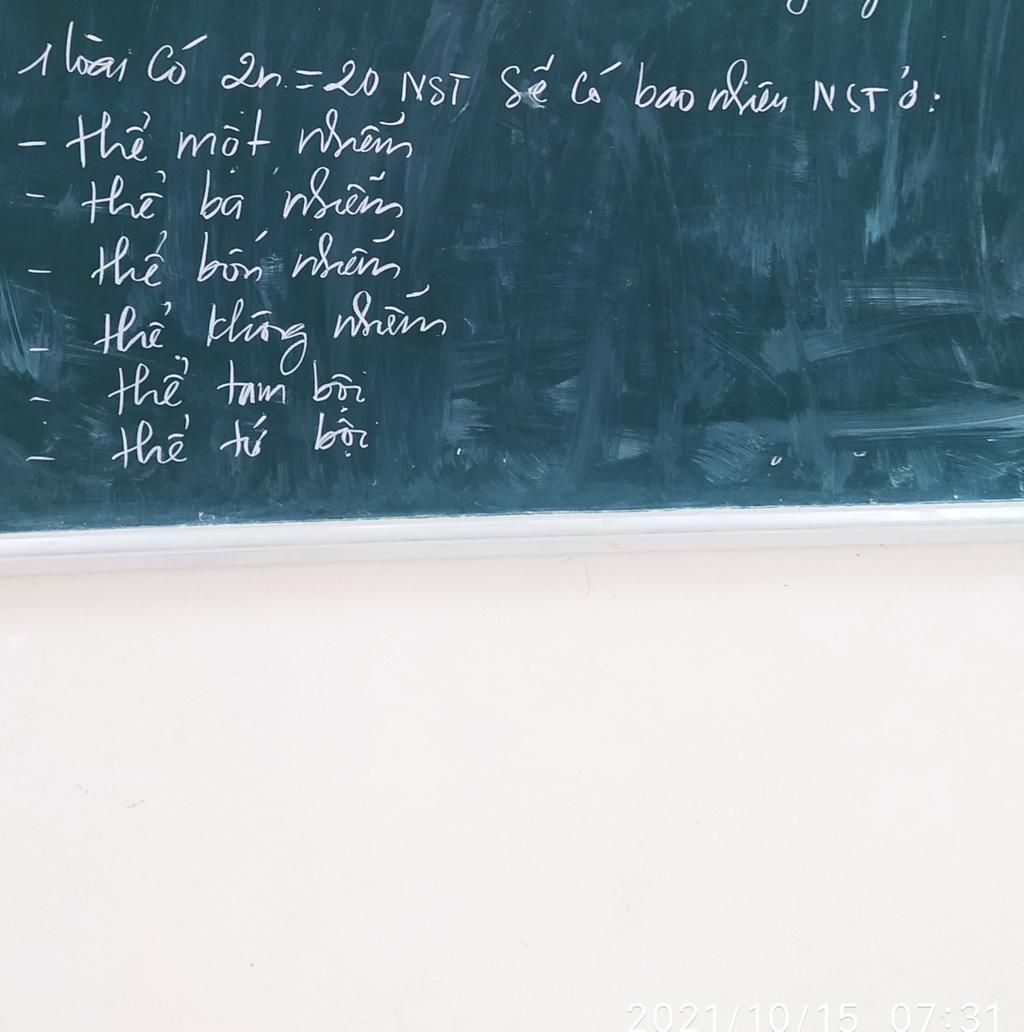 1 loài có 2n = 20 NST sẽ có bao nhiêu NST ở:
- thể một nhiễm
- thể ba nhiễm
- thể bốn nhiễm
- thể không nhiễm
- thể tam bội
- thể tứ bội
2021/10/15 07:31